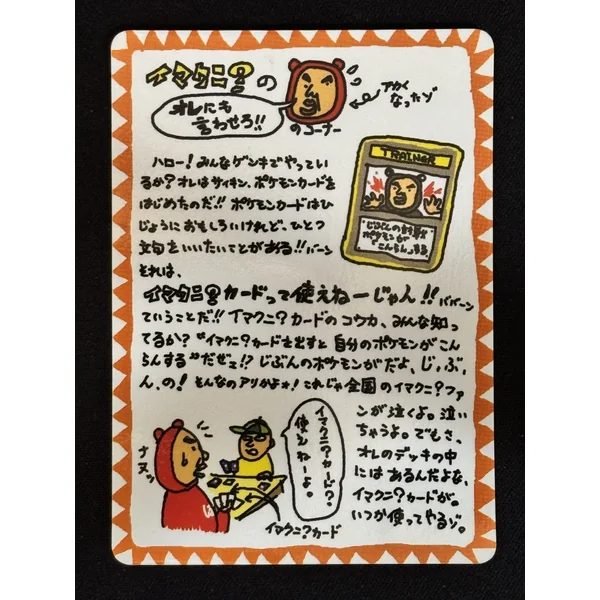 イマクニ?の
アカく
なったゾ
オレにも
言わせろ!!
のコーナー
TRAINER
じぶんの対戦
ポケモンが
こんらんする
ハロー!みんなゲンキでやってい
るか?オレはサイキン、ポケモンカードを
はじめたのだ!!ポケモンカードはひ
じょうにおもしろいけれど、ひとつ
文句をいいたいことがある!!バーン
それは、
イマクニ?カードって使えねーじゃん!!ババーン
ていうことだ!!イマクニ?カードのコウカ、みんな知っ
てるか?“イマクニ?カードを出すと自分のポケモンがこん
らんする”だぜェ!?じぶんのポケモンがだよ、じ、ぶ、
ん、の!そんなのアリかよ★!これじゃ全国のイマクニ?ファ
ンが泣くよ。泣い
ちゃうよ。でもさ、
オレのデッキの中
にはあるんだよな、
イマクニ?カードが。
いつか使ってやるゾ。
ナヌッ
イマクニ?カード?。
使えねーよ。
イマクニ?カード